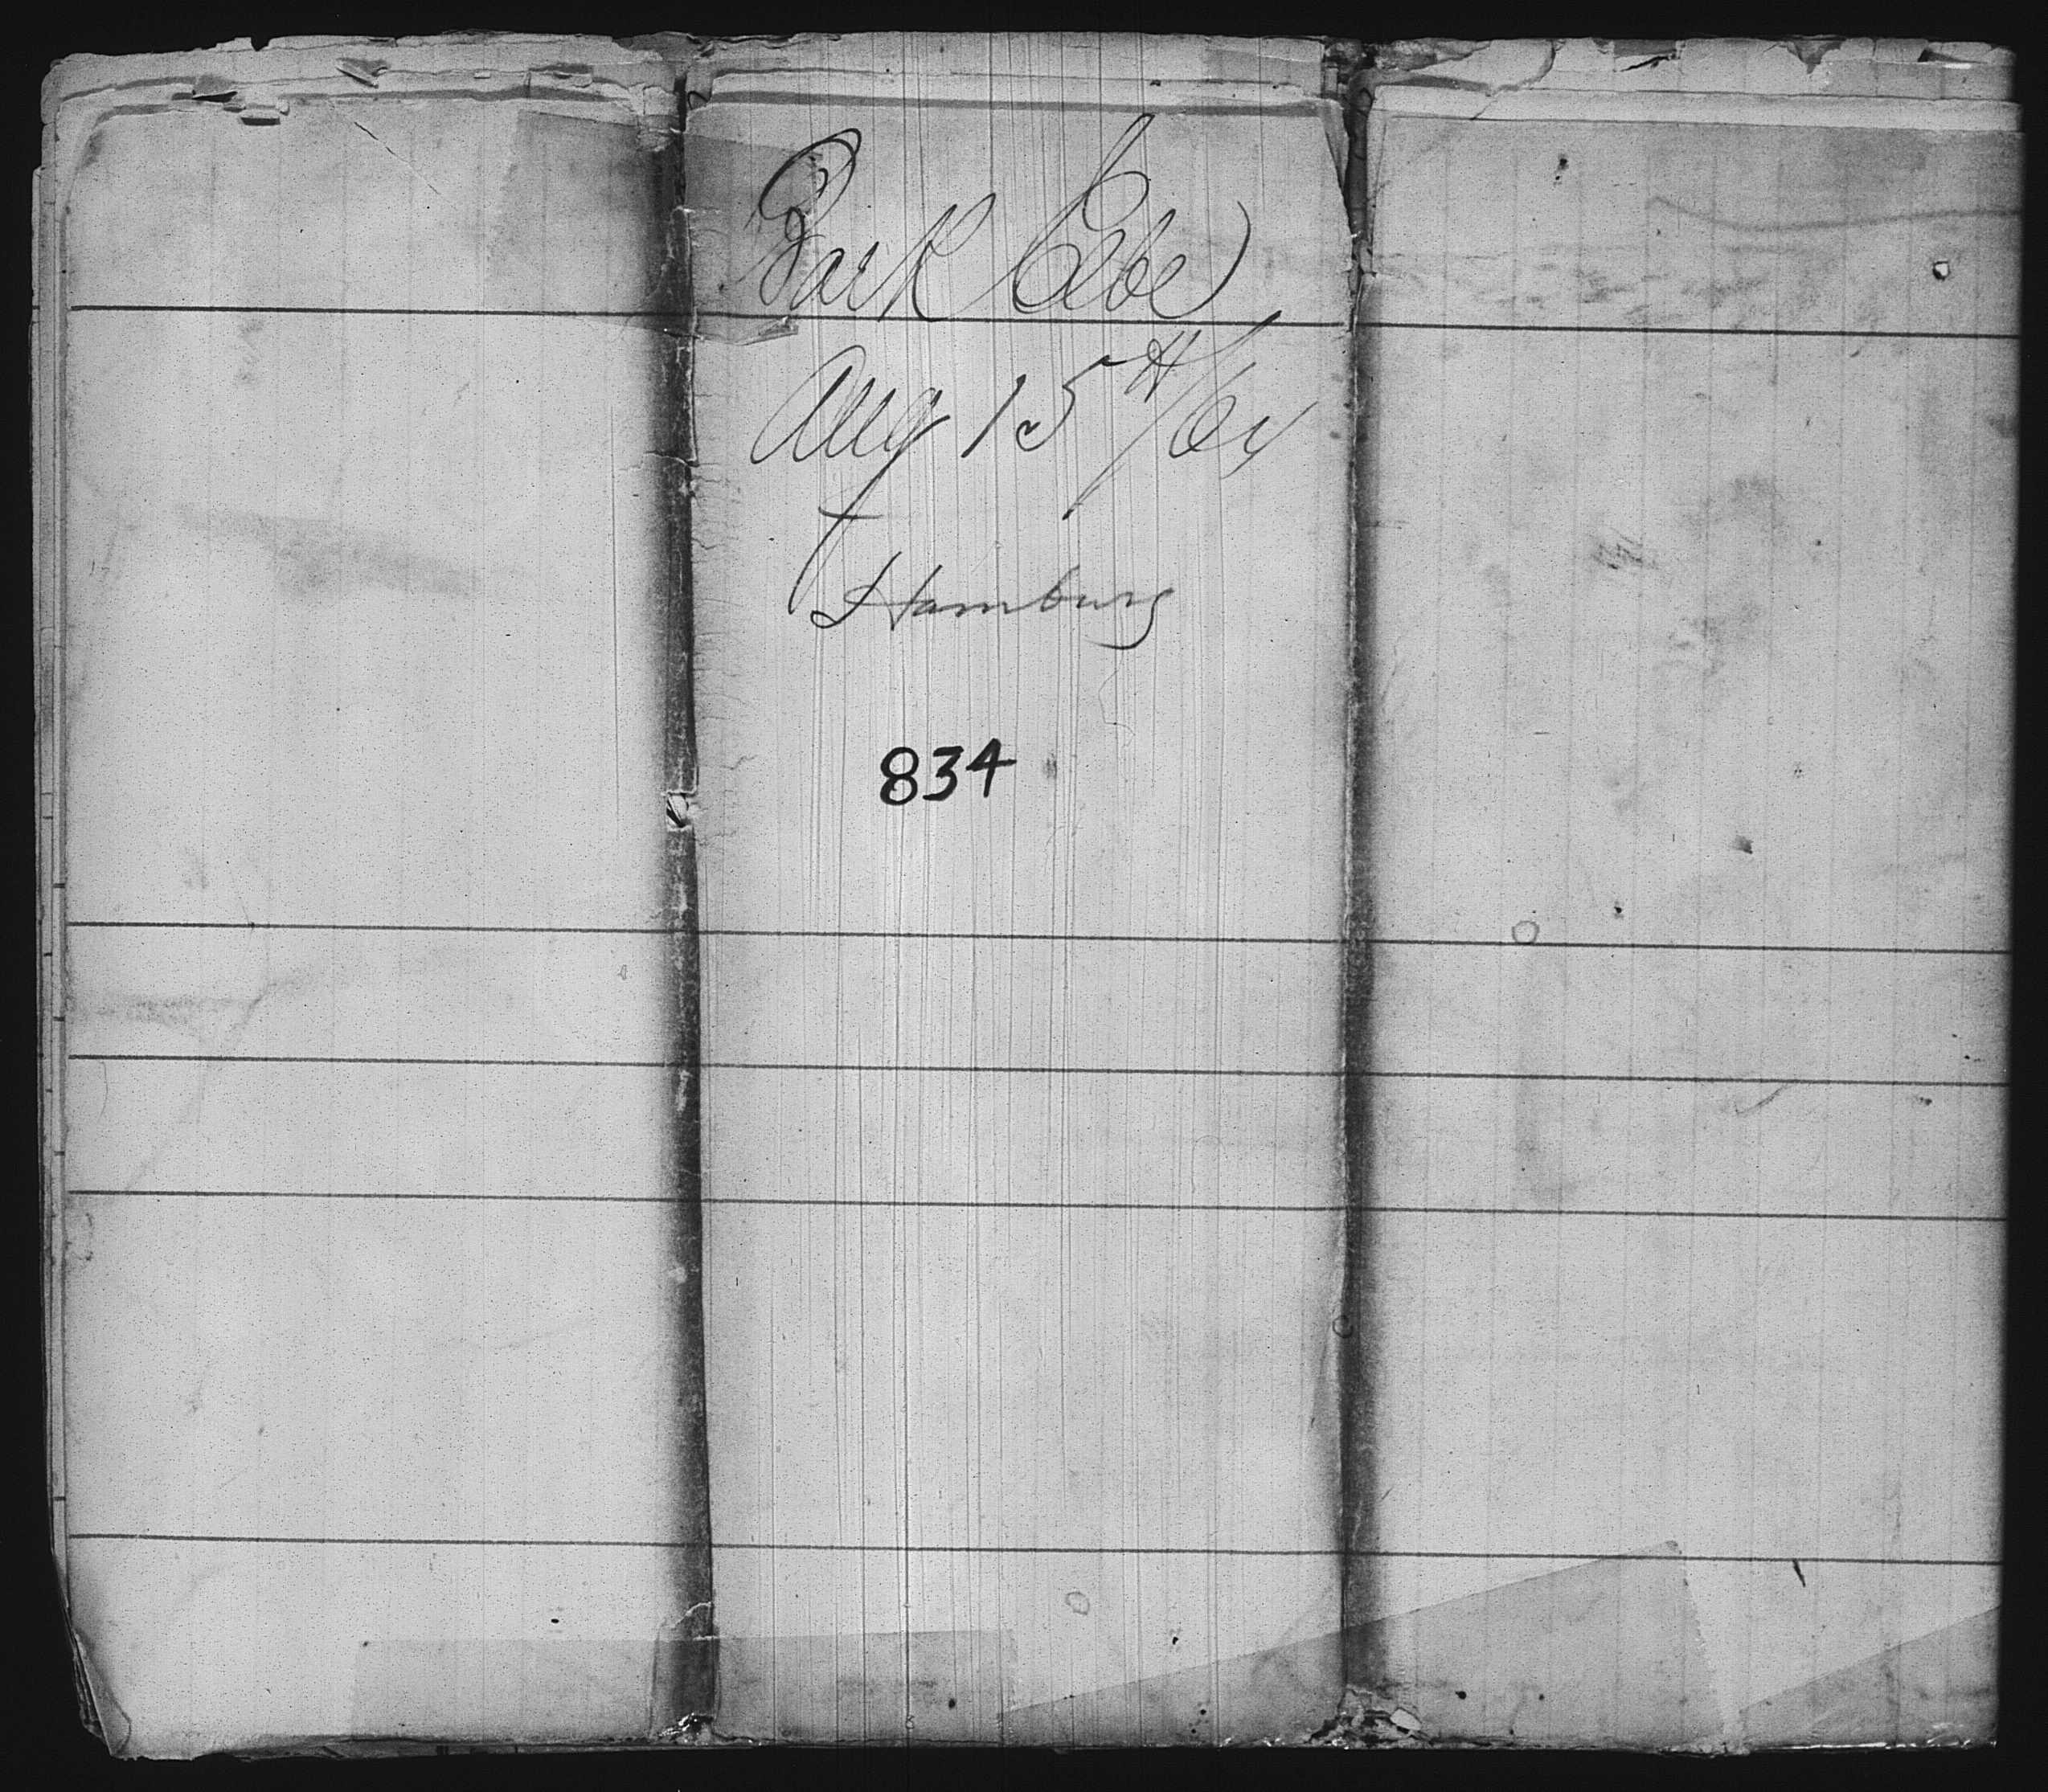 Bark Elbe
Aug 15th/64
Hamburg
834